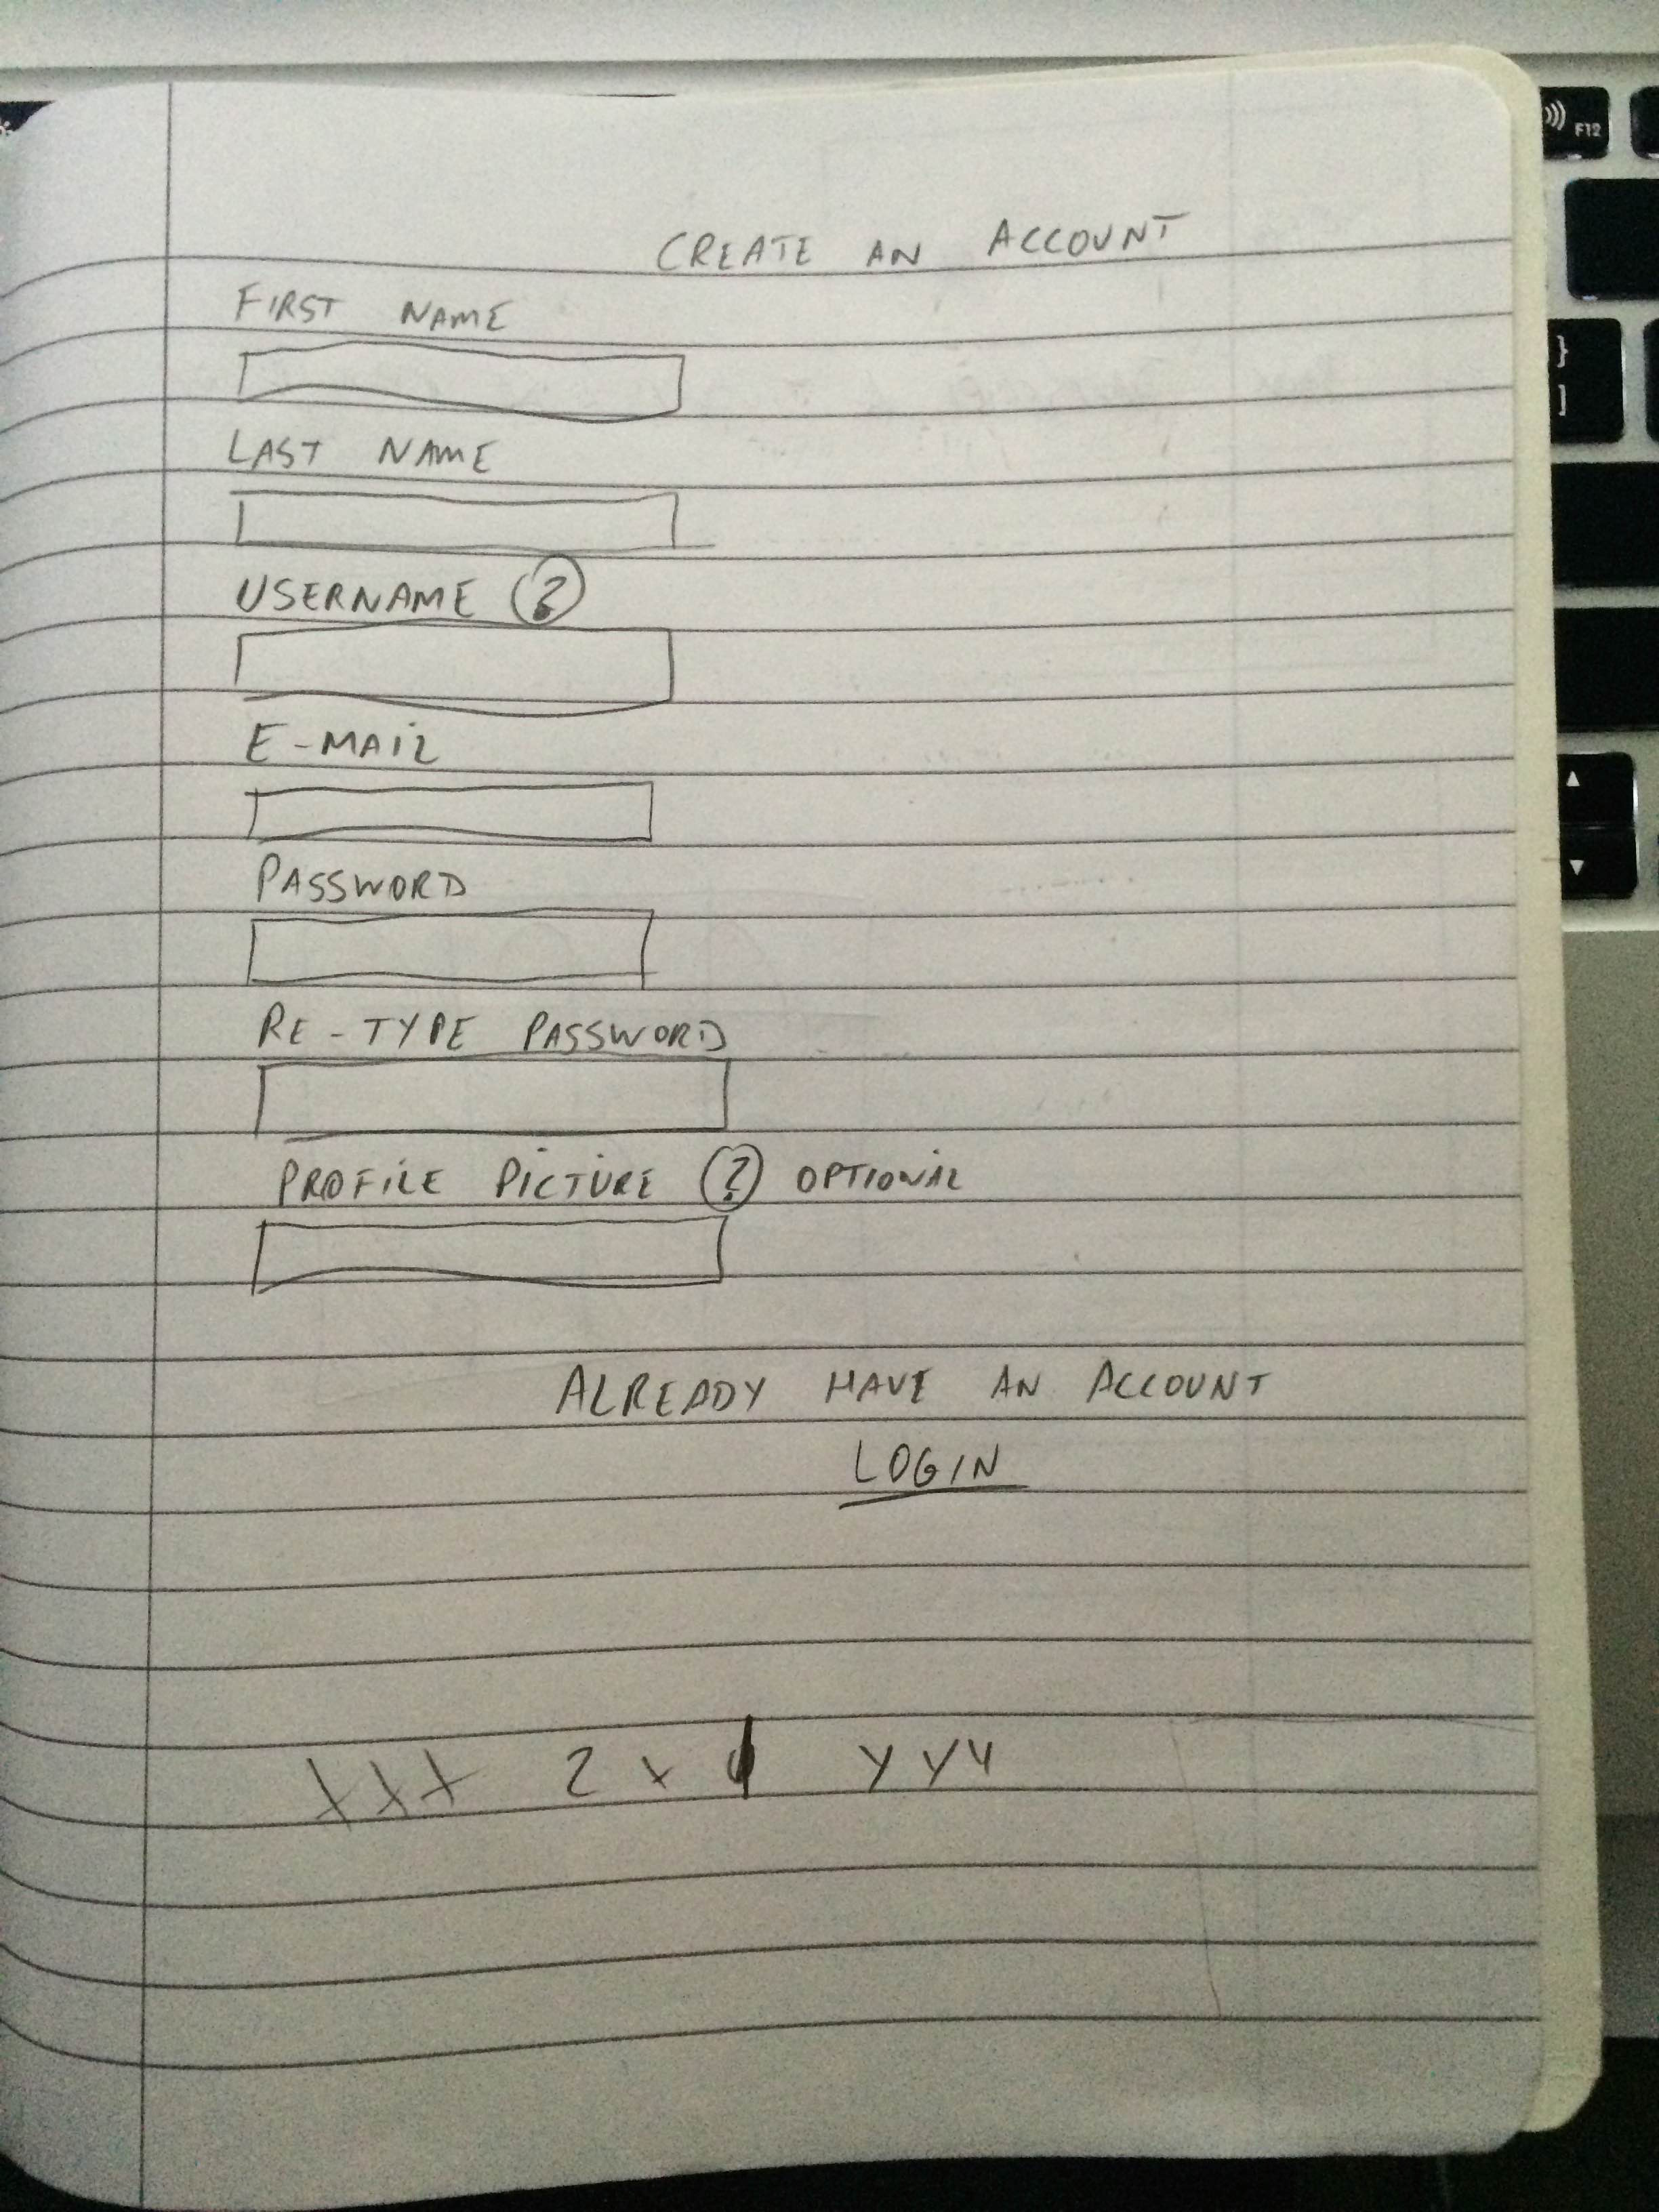 CREATE AN ACCOUNT
FIRST NAME
LAST NAME
USERNAME ?
E-MAIL
PASSWORD
RE-TYPE PASSWORD
PROFILE PICTURE ? OPTIONAL
ALREADY HAVE AN ACCOUNT
LOGIN
F12
}
]